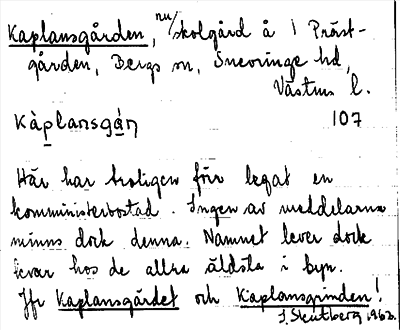 Kaplansgården, nu/skolgård å 1 Präst-
gården, Bergs sn, Snevringe hd,
Västms l.
Kàplansgá̱ṉ 107
Här har troligen förr legat en
komministerbostad. Ingen av meddelarna
minns dock denna. Namnet lever dock
kvar hos de allra äldsta i byn.
Jfr Kaplansgärdet och Kaplansgrinden!
J. Skutberg 1962.